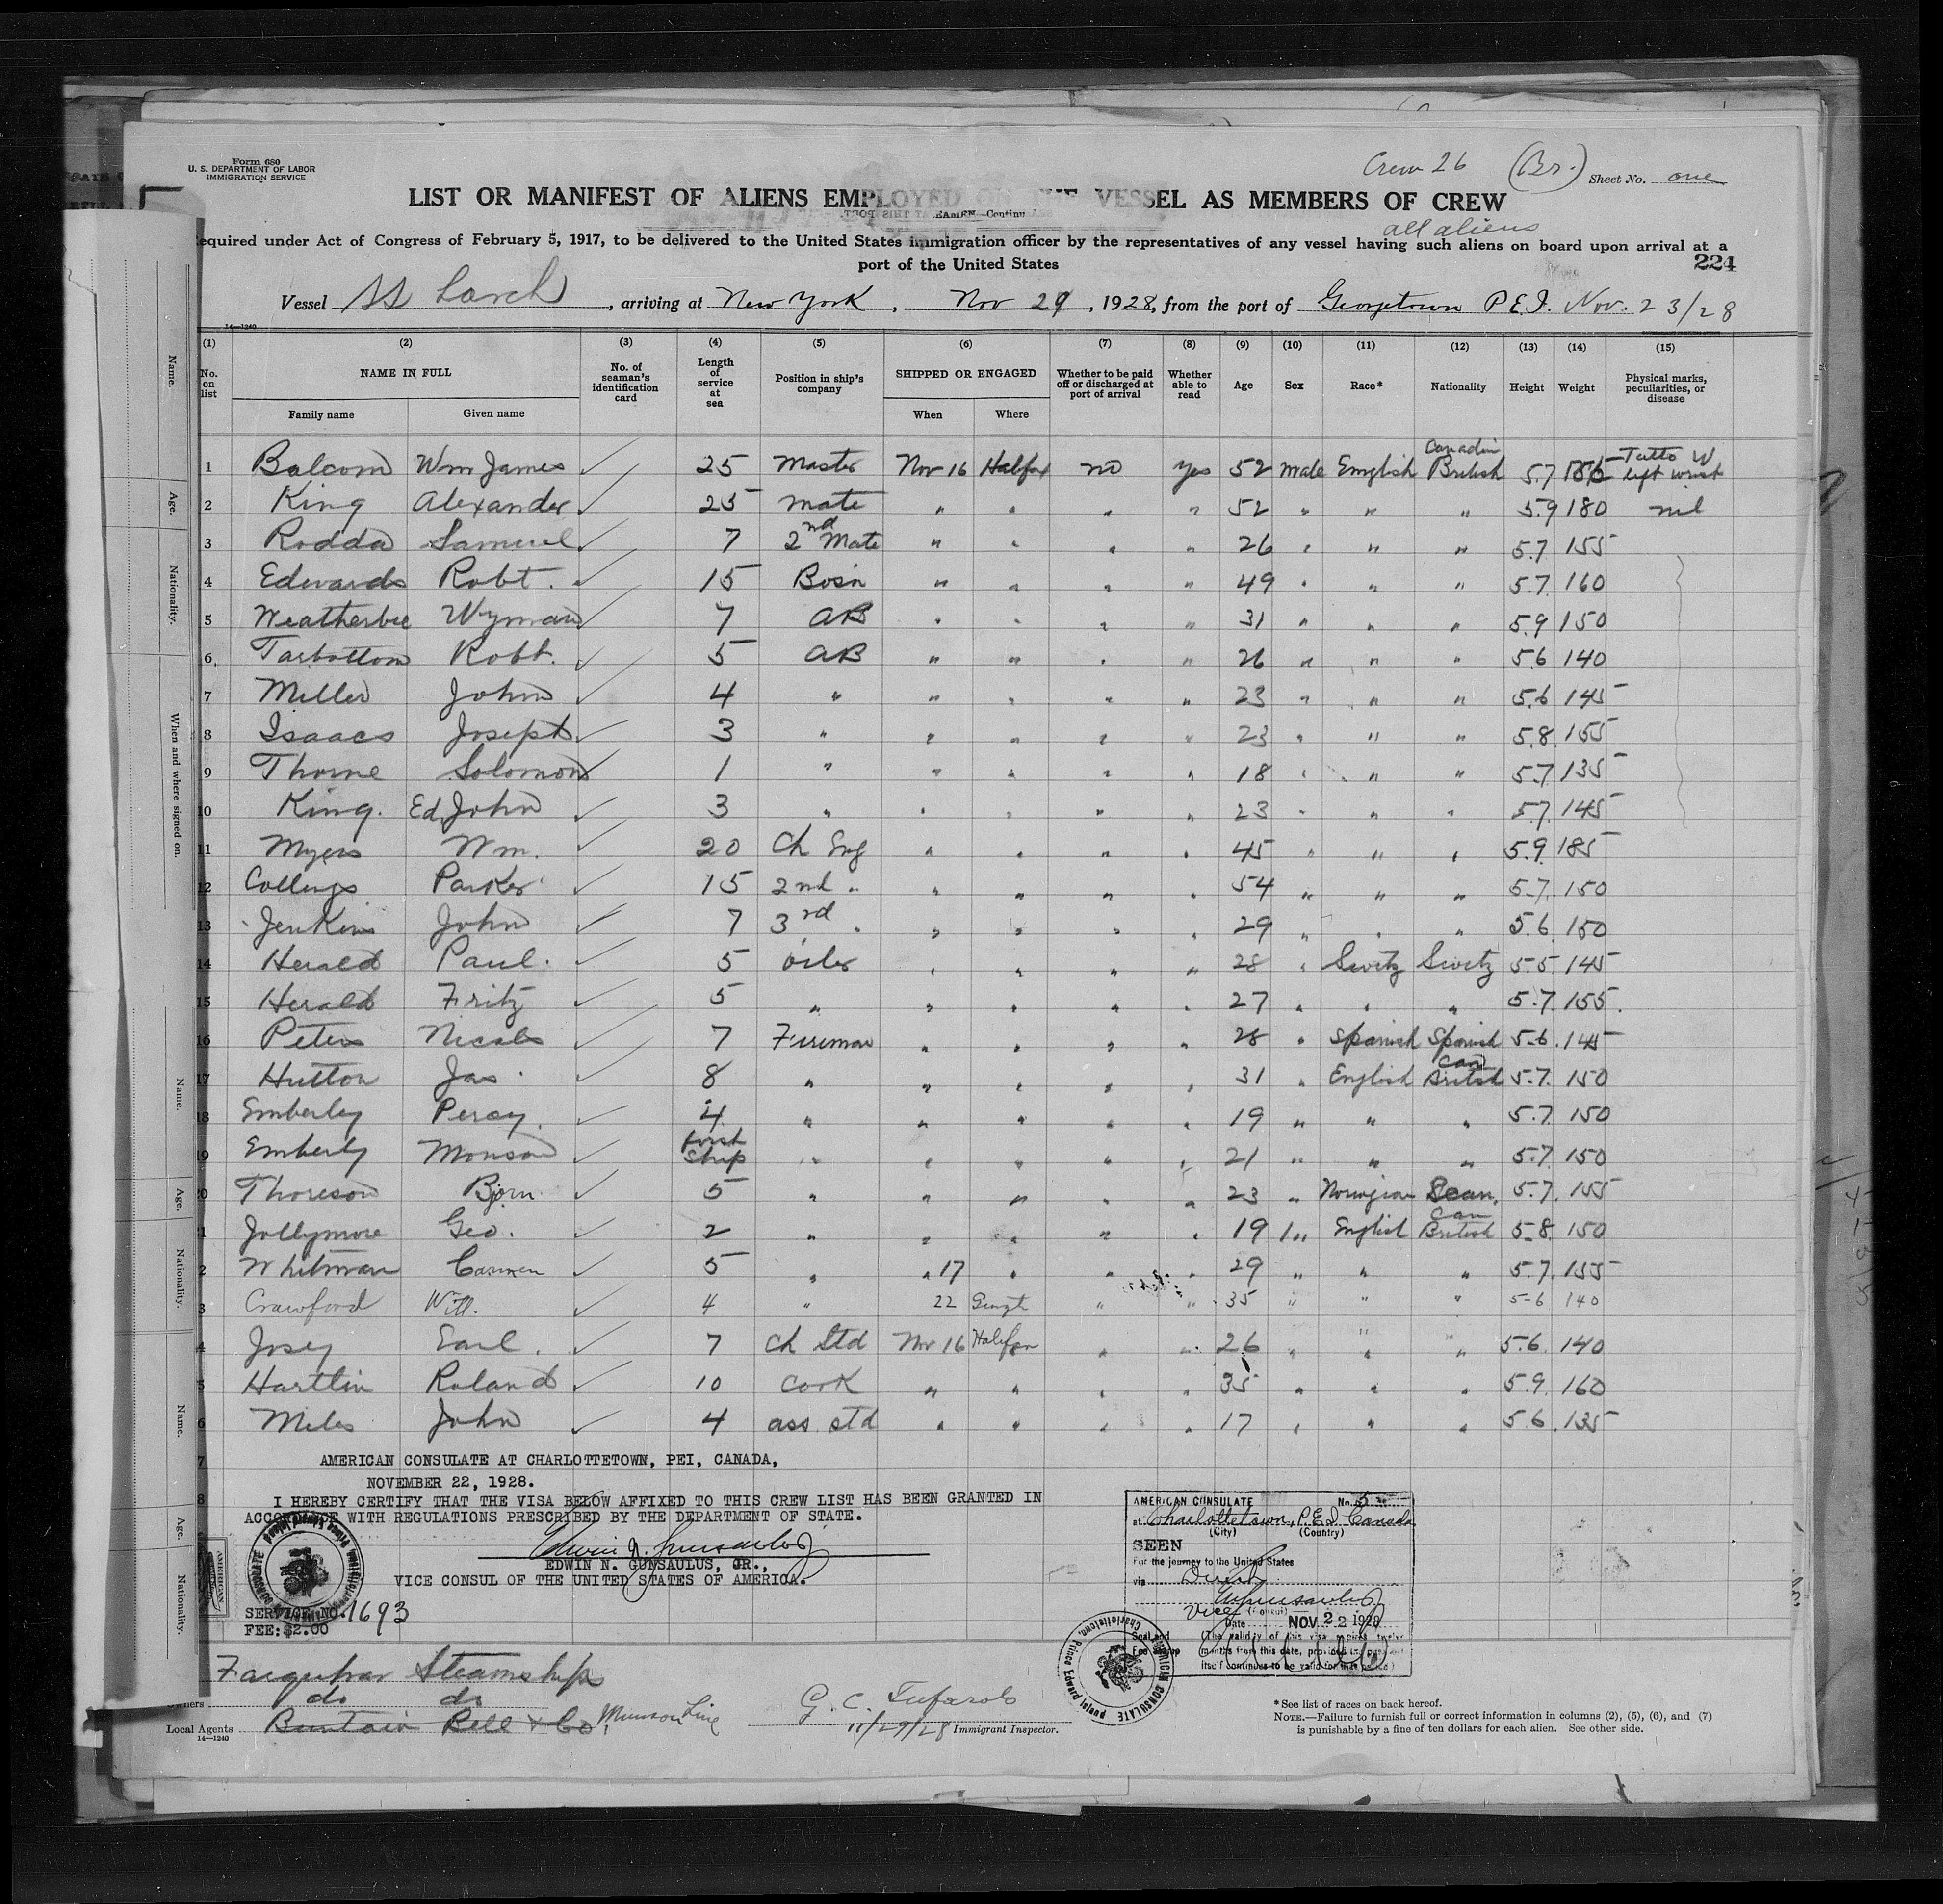 Form 680
U. S. DEPARTMENT OF LABOR
IMMIGRATION SERVICE
Crew 26 (Br.) Sheet No. one
LIST OR MANIFEST OF ALIENS EMPLOYED ON THE VESSEL AS MEMBERS OF CREW
all aliens
equired under Act of Congress of February 5, 1917, to be delivered to the United States immigration officer by the representatives of any vessel having such aliens on board upon arrival at a
port of the United States
224
Vessel SS Larch, arriving at New York, Nov 29, 1928, from the port of Georgetown P.E.I. Nov. 23/28
14—1240
(1) (2) (3) (4) (5) (6) (7) (8) (9) (10) (11) (12) (13) (14) (15)
No. on list NAME IN FULL Family name Given name No. of seaman's identification card Length of service at sea Position in ship's company SHIPPED OR ENGAGED When Where Whether to be paid off or discharged at port of arrival Whether able to read Age Sex Race* Nationality Height Weight Physical marks, peculiarities, or disease
1 Balcom Wm James 25 Master Nov 16 Halfax no yes 52 male English Canadian British 5.7 Tatto W left wrist
2 King Alexander 25 mate " " " " 52 " " " 5.9 180 nil
3 Rodda Samuel 7 2nd Mate " " " " 26 " " " 5.7 155
4 Edwards Robt. 15 Bosn " " " " 49 " " " 5.7 160
5 Weatherbee Wyman 7 AB " " " " 31 " " " 5.9 150
6 Tarbottom Robt. 5 AB " " " " 26 " " " 5.6 140
7 Miller John 4 " " " " " 23 " " " 5.6 145
8 Isaacs Joseph 3 " " " " " 23 " " " 5.8 155
9 Thorne Solomon 1 " " " " " 18 " " " 5.7 135
10 King. Ed. John 3 " " " " " 23 " " " 5.7 145
11 Myers Wm. 20 Ch Eng " " " " 45 " " " 5.9 185
12 Collings Parker 15 2nd " " " " " 54 " " " 5.7 150
13 Jenkins John 7 3rd " " " " " 29 " " " 5.6 150
14 Herald Paul. 5 oiler " " " " 28 " Switz Switz 5.5 145
15 Herald Fritz 5 " " " " " 27 " " " 5.7 155
16 Peters Nicals 7 Fireman " " " " 28 " Spanish Spanish 5.6 145
17 Hutton Jas. 8 " " " " " 31 " English Can British 5.7 150
18 Emberley Percy. 4 " " " " " 19 " " " 5.7 150
19 Emberly Monson first ship " " " " " 21 " " " 5.7 150
20 Thoreson Bjorn 5 " " " " " 23 " Norwgian Scan. 5.7 155
1 Jollymore Geo. 2 " " " " " 19 " English Can British 5.8 150
2 Whitman Carmen 5 " " 17 " " " 29 " " " 5.7 155
3 Crawford Will. 4 " 22 " " 35 " " " 5-6 140
4 Josey Earl. 7 Ch Std Nov 16 Halifax " " 26 " " " 5.6 140
5 Hartlin Roland 10 Cook " " " " 35 " " " 5.9 160
6 Miles John 4 ass std " " " " 17 " " " 5.6 135
7 AMERICAN CONSULATE AT CHARLOTTETOWN, PEI, CANADA,
NOVEMBER 22, 1928.
8 I HEREBY CERTIFY THAT THE VISA BELOW AFFIXED TO THIS CREW LIST HAS BEEN GRANTED IN
ACCORDANCE WITH REGULATIONS PRESCRIBED BY THE DEPARTMENT OF STATE.
Edwin N. Gunsaulus Jr
EDWIN N. GUNSAULUS, JR.,
VICE CONSUL OF THE UNITED STATES OF AMERICA.
SERVICE NO. 1693
FEE: $2.00
AMERICAN CONSULATE No. 5
at Charlottetown, P.E.I. Canada
(City) (Country)
SEEN
For the journey to the United States
via Direct
Vice (Consul)
Date NOV 22 1928
Seal and Fee stamp (The validity of this visa expires twelve
months from this date, provided the passport
itself continues to be valid for that period)
AMERICAN CONSULATE Charlottetown, Prince Edward Island
Farquhar Steamship
Owners do do
Local Agents Buntain Bell & Co. Munson Line
14—1240
G. C. Tufarolo
11/29/28 Immigrant Inspector.
*See list of races on back hereof.
NOTE.—Failure to furnish full or correct information in columns (2), (5), (6), and (7)
is punishable by a fine of ten dollars for each alien. See other side.
Name.
Age.
Nationality.
When and where signed on.
Name.
Age.
Nationality.
Name.
Age.
Nationality.